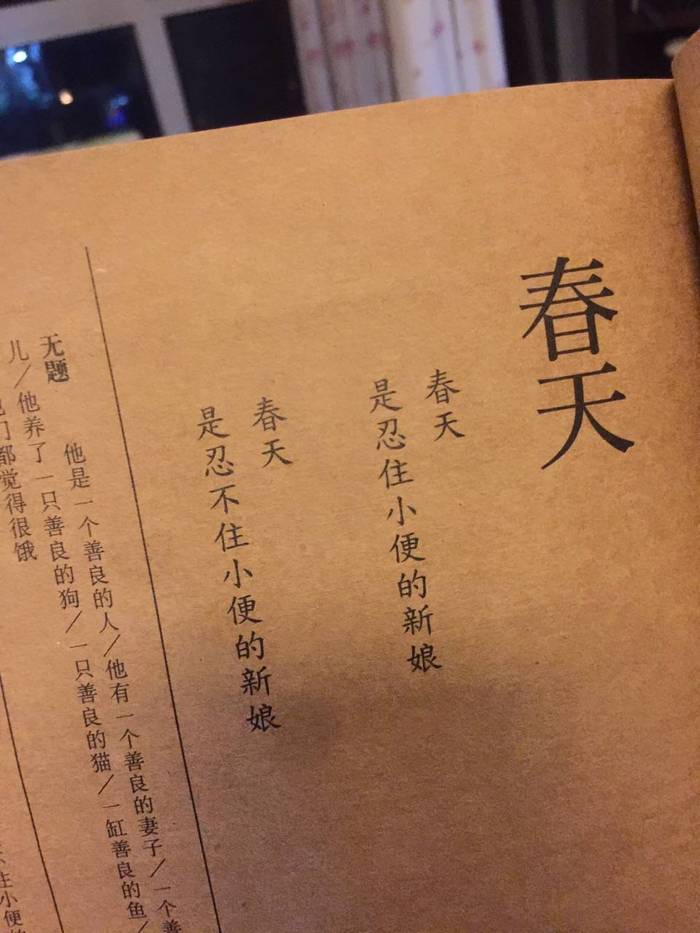 春天
春天
是忍住小便的新娘
春天
是忍不住小便的新娘
无题
他是一个善良的人/他有一个善良的妻子/一个善
儿/他养了一只善良的狗/一只善良的猫/一缸善良的鱼/
们都觉得很饿
住小便的